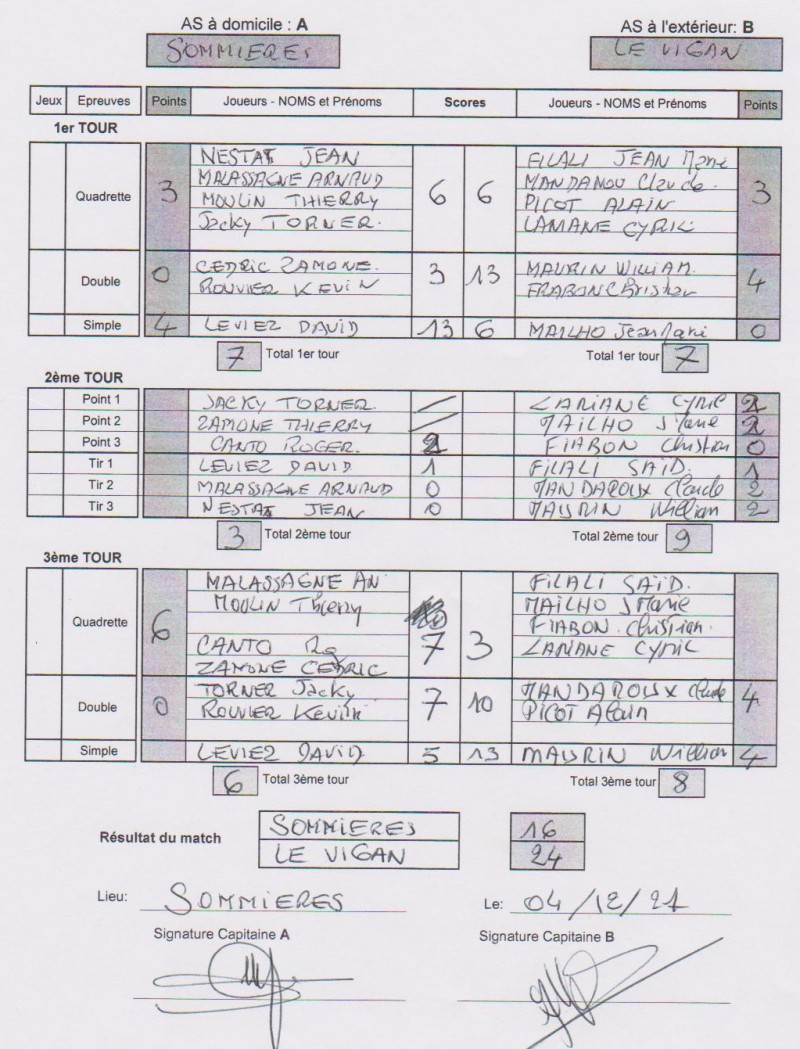 AS à domicile : A AS à l'extérieur: B
SOMMIERES LE VIGAN
Jeux Epreuves Points Joueurs - NOMS et Prénoms Scores Joueurs - NOMS et Prénoms Points
1er TOUR
NESTAT JEAN FILALI JEAN Marie
MALASSAGNE ARNAUD MANDAROU Claude.
Quadrette 3 MOULIN THIERRY 6 6 PICOT ALAIN 3
Jacky TORNER. LAMANE CYRIL
CEDRIC ZAMONE. MAURIN WILLIAM.
Double 0 ROUVIER KEVIN 3 13 FRABON Christian 4
Simple 4 LEVIEZ DAVID 13 6 MAILHO Jean Marie 0
7 Total 1er tour Total 1er tour 7
2ème TOUR
Point 1 JACKY TORNER. LARIANE CYRIL 2
Point 2 ZAMONE THIERRY MAILHO J Marie 2
Point 3 CANTO ROGER. 2 FIABON Christian 0
Tir 1 LEVIEZ DAVID 1 FILALI SAÏD. 1
Tir 2 MALASSAGNE ARNAUD 0 MANDAROUX Claude 2
Tir 3 NESTAT JEAN 0 MAURIN William 2
3 Total 2ème tour Total 2ème tour 9
3ème TOUR
MALASSAGNE AN FILALI SAÏD.
MOULIN Thierry MAILHO J Marie
Quadrette 6 7 3 FIABON. Christian.
CANTO Ro LARIANE CYRIL
ZAMONE CEDRIC
TORNER Jacky MANDAROUX Claude
Double 0 ROUVIER Kevin 7 10 PICOT Alain 4
Simple LEVIEZ DAVID 5 13 MAURIN William 4
6 Total 3ème tour Total 3ème tour 8
Résultat du match SOMMIERES 16
LE VIGAN 24
Lieu: SOMMIERES Le: 04/12/21
Signature Capitaine A Signature Capitaine B